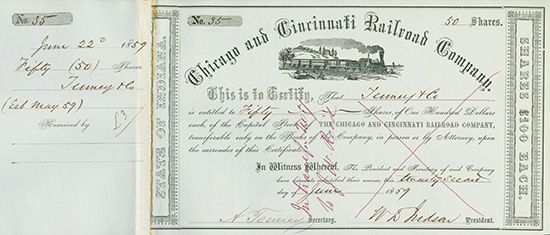 No. 35
June 22d 1859
Fifty (50) Shares
Tenney & Co
(Cert May 59)
Received by
£3
STATE OF INDIANA.
No. 35
50 Shares.
Chicago and Cincinnati Railroad Company.
This is to Certify, That Tenney & Co
is entitled to Fifty Shares of One Hundred Dollars
each, of the Capital Stock of THE CHICAGO AND CINCINNATI RAILROAD COMPANY,
transferable only on the Books of the Company, in person or by Attorney, upon
the surrender of this Certificate.
In Witness Whereof, The President and Secretary of said Company
have subscribed their names, this twenty second
day of June 1859
A. Tenney Secretary. President.
SHARES $100 EACH.